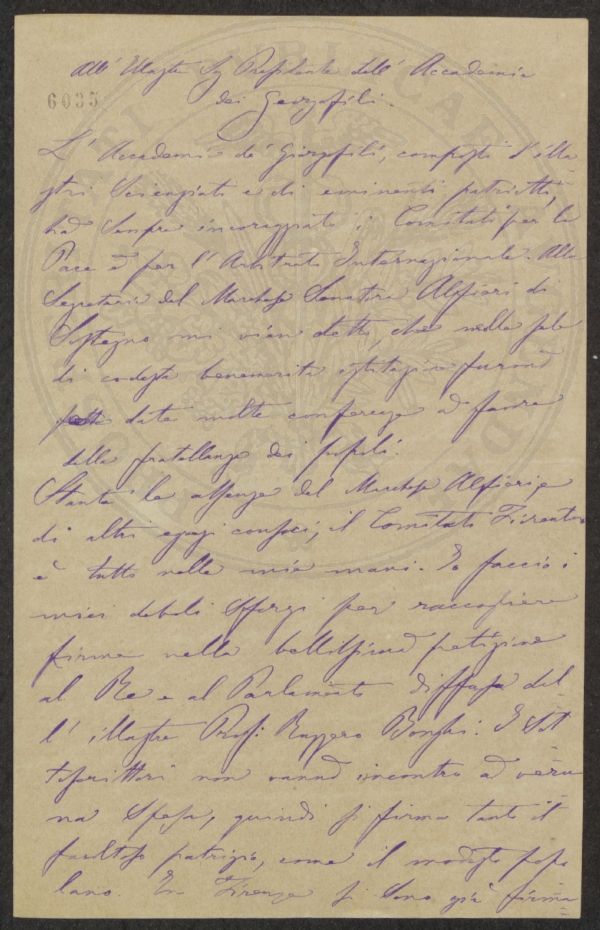 All' Illustre Sg Presidente dell' Accademia
6035
dei Georgofili.
L' Accademia de' Giorgofili, composta d' illu
stri Scienziati e di eminenti patriotti,
ha sempre incoraggiato i Comitati per la
Pace e per l' Arbitrato Internazionale. Alla
Segreteria del Marchese Senatore Alfieri di
Sostegno mi vien detto, che nelle sale
di codesta benemerita istituzione furono
date molte conferenze a favore
della fratellanza dei popoli.
Stante la assenza del Marchese Alfieri e
di altri egregi consoci, il Comitato Fiorentino
è tutto nelle mie mani. Io faccio i
miei deboli sforzi per raccogliere
firme nella bellissima petizione
al Re e al Parlamento diffusa del
l' illustre Prof. Ruggero Bonghi. I Sot
toscrittori non vanno incontro ad veru
na Spesa, quindi si firma tanto il
facoltoso patrizio, come il modesto popo
lano. In Firenze si sono già firma